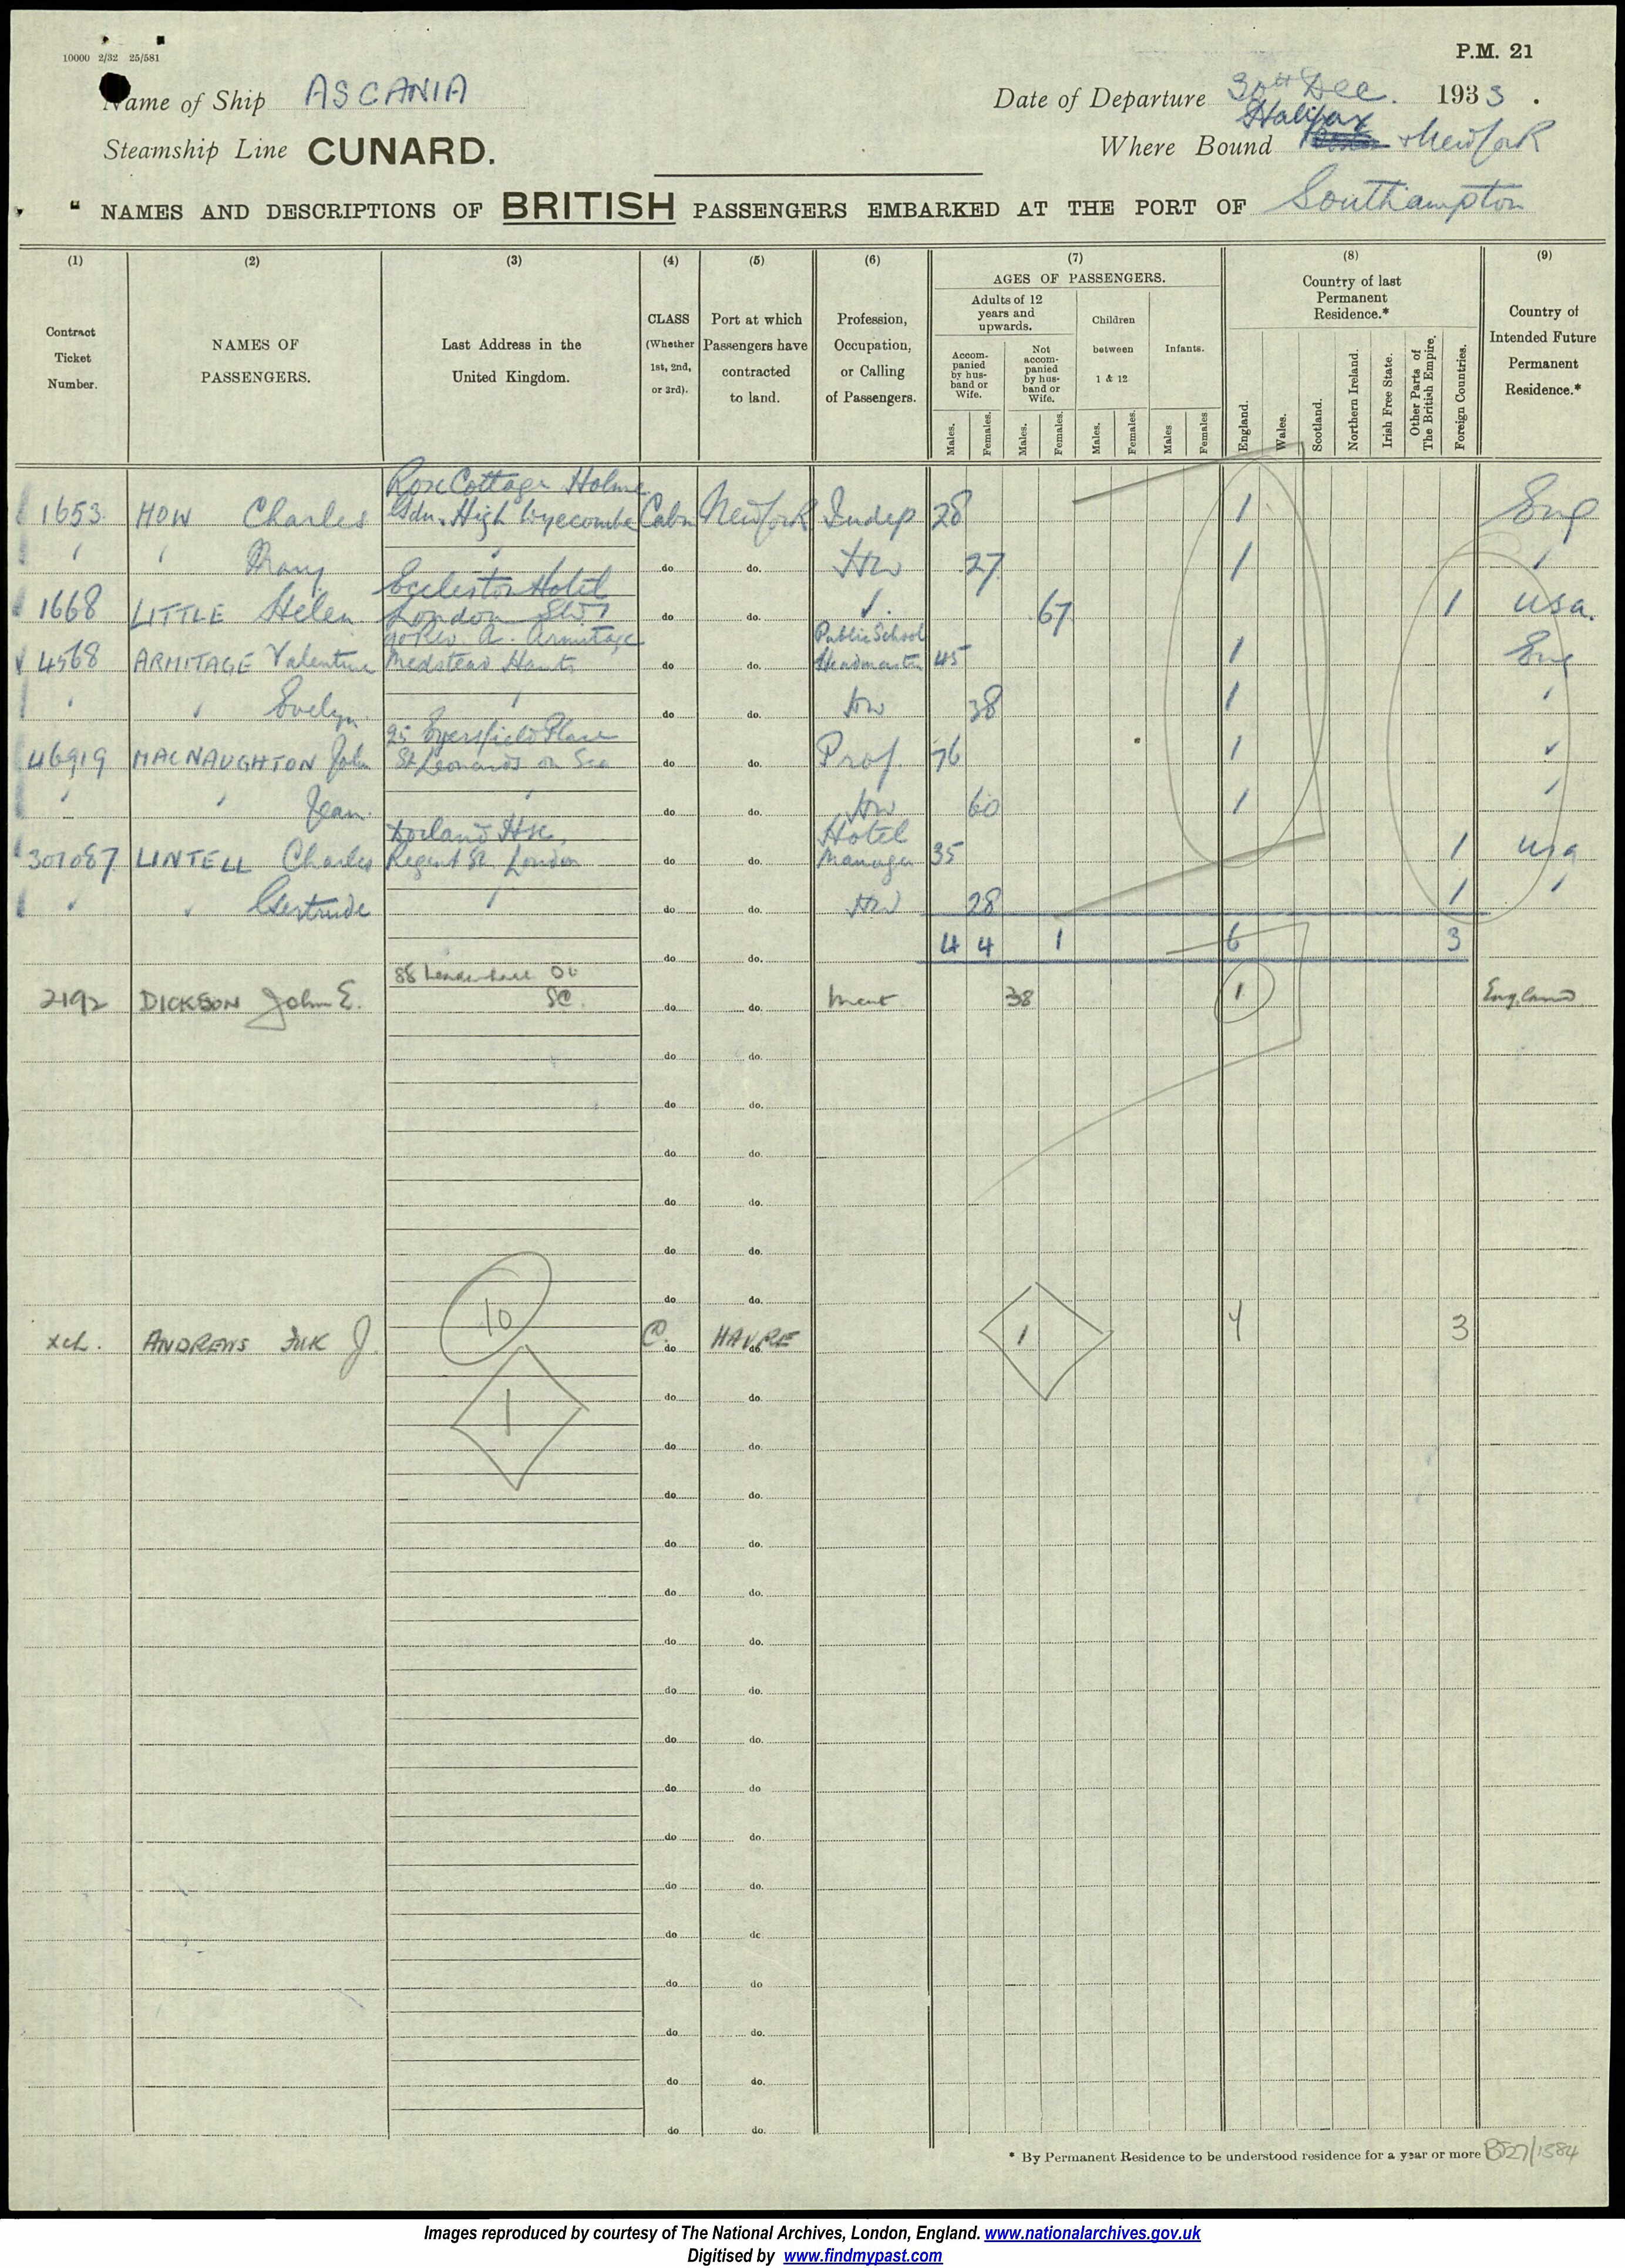 10000 2/32 25/581
P.M. 21
Name of Ship ASCANIA
Date of Departure 30th Dec. 1933.
Steamship Line CUNARD.
Where Bound Halifax + New York
" NAMES AND DESCRIPTIONS OF BRITISH PASSENGERS EMBARKED AT THE PORT OF Southampton
(1) (2) (3) (4) (5) (6) (7) (8) (9)
Contract Ticket Number.
NAMES OF PASSENGERS.
Last Address in the United Kingdom.
CLASS (Whether 1st, 2nd, or 3rd).
Port at which Passengers have contracted to land.
Profession, Occupation, or Calling of Passengers.
AGES OF PASSENGERS.
Adults of 12 years and upwards.
Accompanied by husband or Wife.
Not accompanied by husband or Wife.
Children between 1 & 12
Infants.
Males. Females. Males. Females. Males. Females. Males Females
Country of last Permanent Residence.*
England. Wales. Scotland. Northern Ireland. Irish Free State. Other Parts of The British Empire. Foreign Countries.
Country of Intended Future Permanent Residence.*
Rose Cottage Holme
1653 HOW Charles Gdn. High Wycombe Cabn New York Indep 28 1 Eng
" " Mary " do do. HW 27 1 "
Eccleston Hotel
1668 LITTLE Helen London SW1 do do. 67 1 USA.
Rev. A. Armitage Public School
4568 ARMITAGE Valentine Medstead Hants do do. Headmaster 45 1 Eng
" " Evelyn " do do. HW 38 1 "
25 Eversfield Place
46919 MACNAUGHTON John St Leonards on Sea do do. Prof. 76 1 "
" " Jean. " do do. HW 60 1 "
Dorland Hse, Hotel
301087 LINTELL Charles Regent St London do do. Manager 35 1 USA
" " Gertrude " do do. HW 28 1 "
4 4 1 6 3
do do.
88 Leadenhall
2192 DICKSON John E. do do. Merct 38 1 England
do do.
do do.
do do.
do do.
do do.
10
do do.
xch. ANDREWS J. C. do HAVRE do. 1 4 3
1
do do.
do do.
do do.
do do.
do do.
do do.
do do.
do do.
do do
do do.
do do.
do dc
do do
do do.
do do.
do do.
* By Permanent Residence to be understood residence for a year or more
BT27/1384
Images reproduced by courtesy of The National Archives, London, England. www.nationalarchives.gov.uk
Digitised by www.findmypast.com